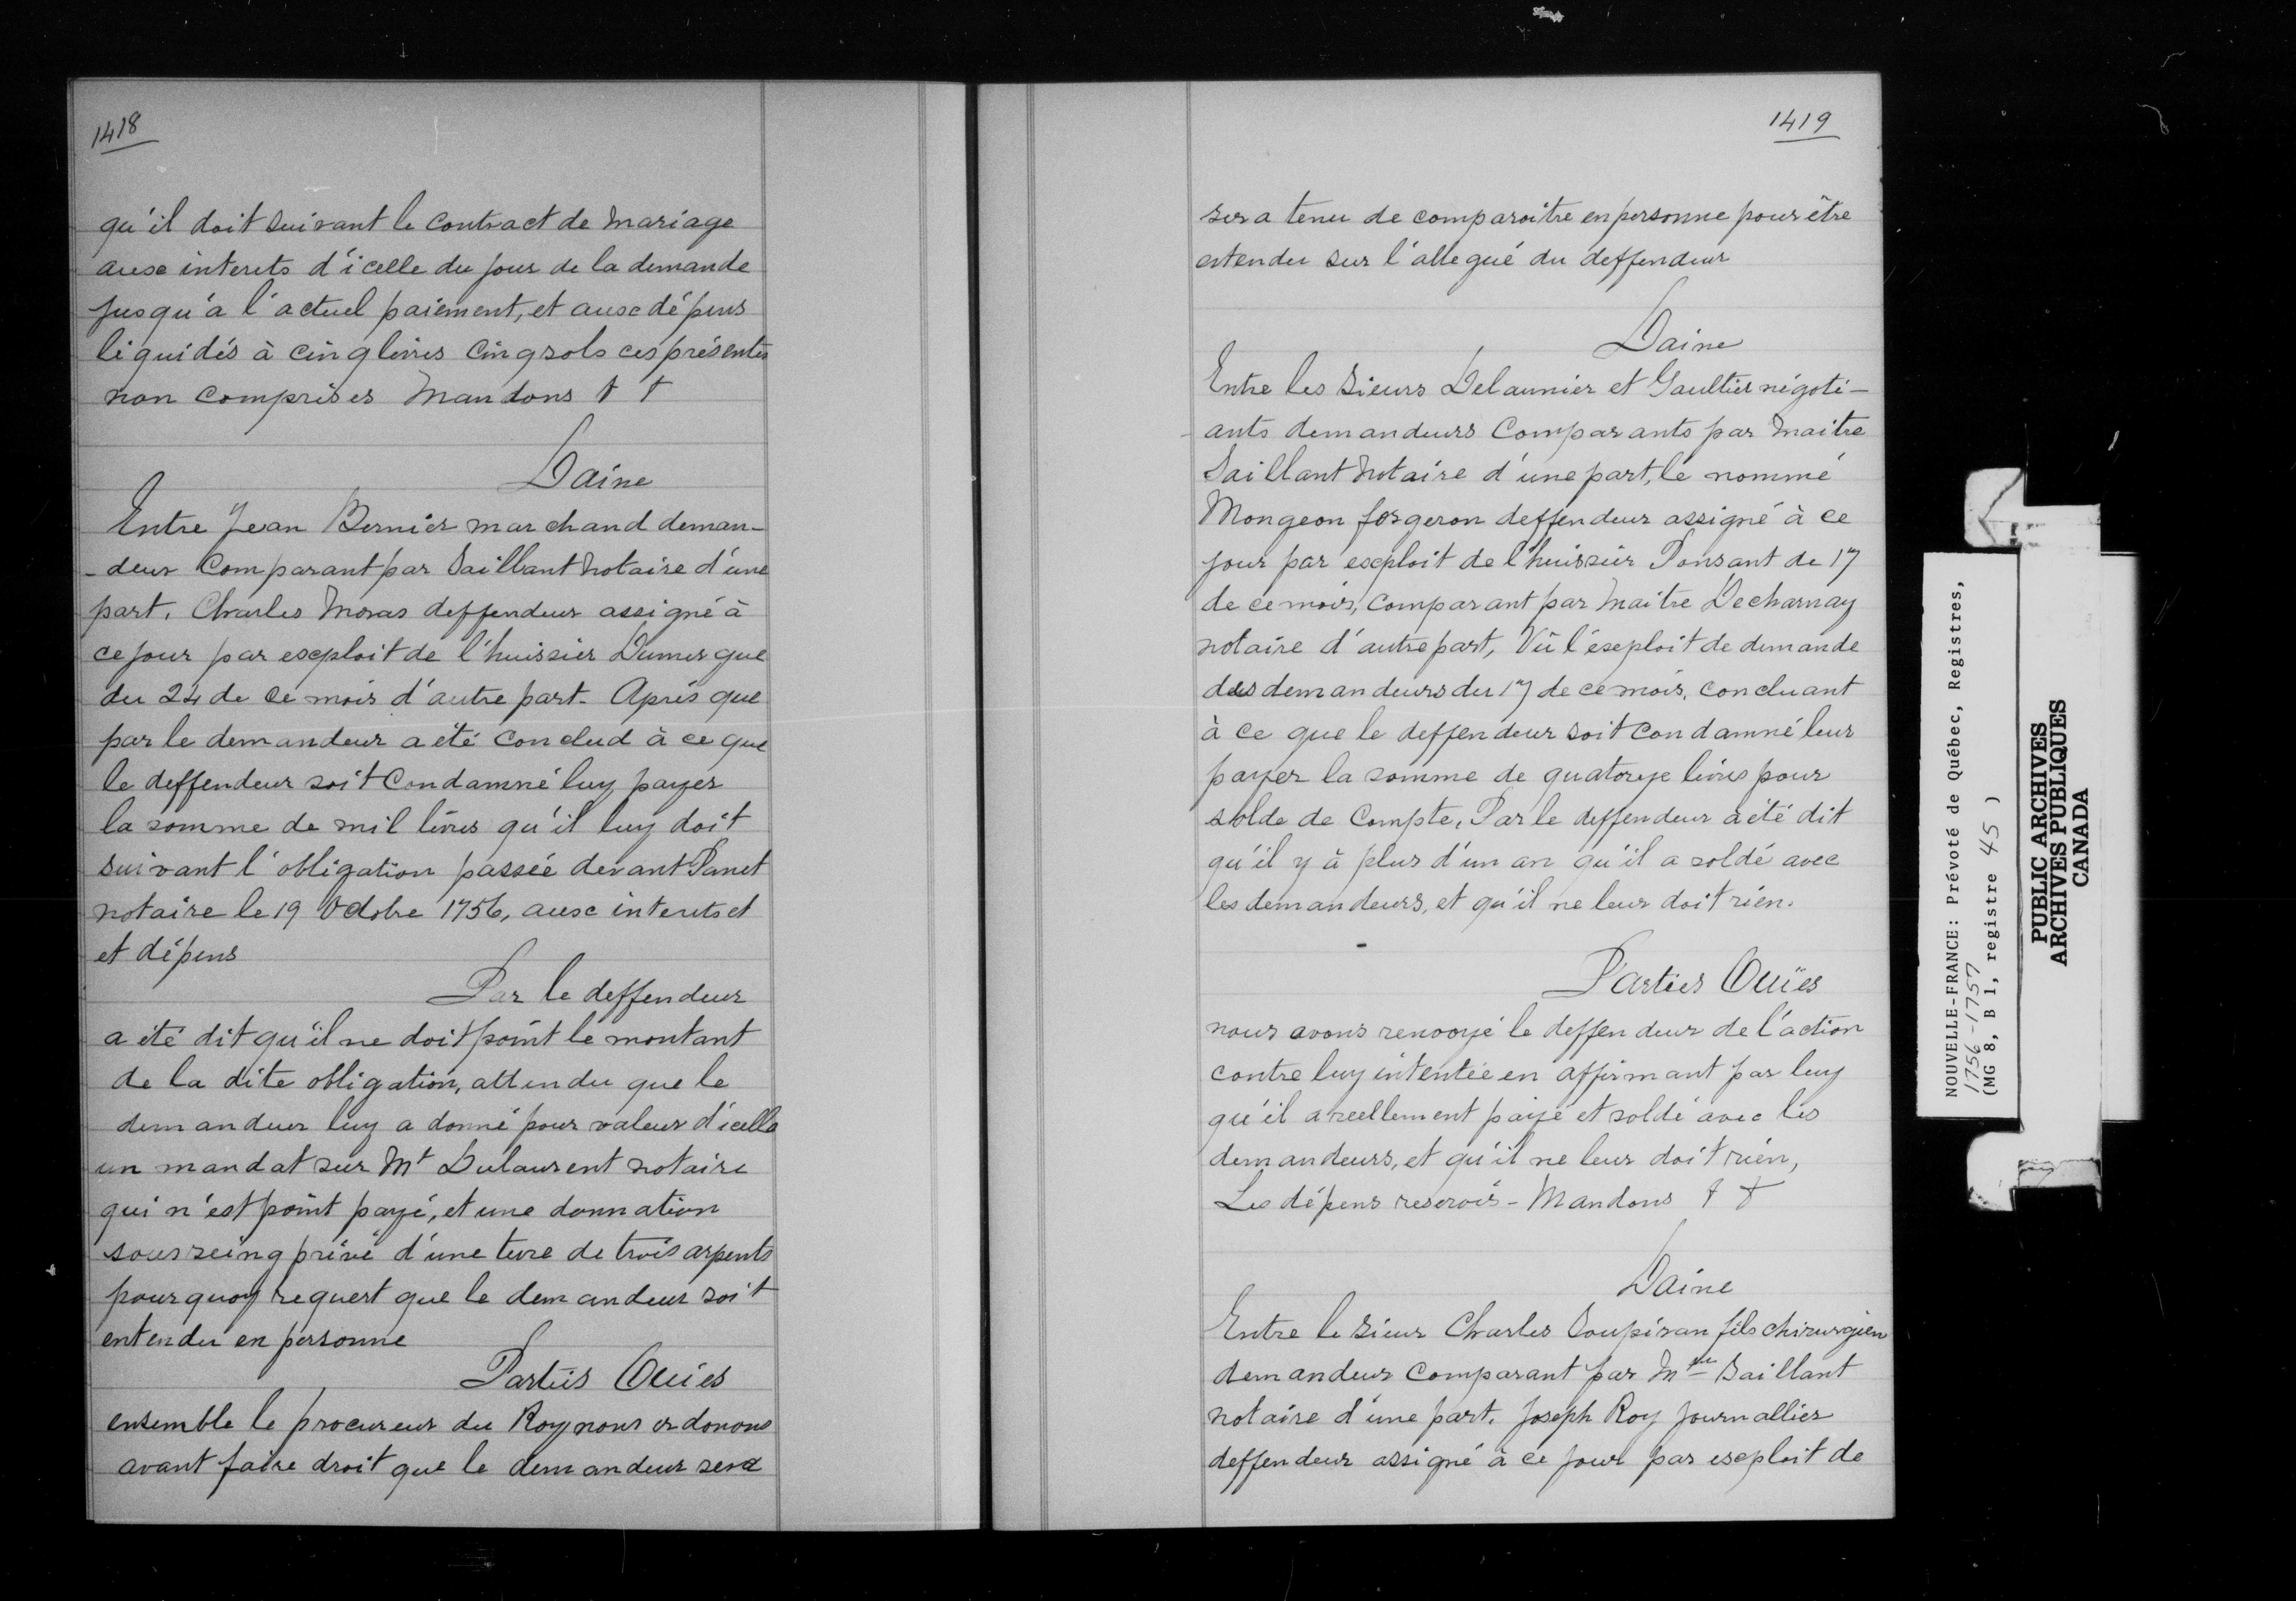 1418
qu'il doit suivant le contract de mariage
aux interets d'icelle du jour de la demande
jusqu'à l'actuel paiement, et aux dépens
liquidés à cinq livres cinq sols ces présentes
non comprises Mandons † †
Daine
Entre Jean Bernier marchand deman-
-deur Comparant par Saillant Notaire d'une
part. Charles Moras deffendeur assigné à
ce jour par exploit de l'huissier Dumergue
du 24 de ce mois d'autre part. Après que
par le demandeur a été Conclud à ce que
le deffendeur soit Condamné luy payer
la somme de mil livres qu'il luy doit
suivant l'obligation passée devant Panet
notaire le 19 Octobre 1756, aux interets et
et dépens
Par le deffendeur
a été dit qu'il ne doit point le montant
de la dite obligation, attendu que le
demandeur luy a donné pour valeur d'icelle
un mandat sur Mt Dulaurent notaire
qui n'est point payé, et une donnation
sous seing privé d'une terre de trois arpents
pourquoy requert que le demandeur soit
entendu en personne
Parties Ouies
ensemble le procureur du Roy nous ordonons
avant faire droit que le demandeur sera
1419
sera tenu de comparoitre en personne pour être
entendu sur l'allegué du deffendeur
Daine
Entre les Sieurs Delaunier et Gaultier négoti-
ants demandeurs Comparants par Maitre
Saillant Notaire d'une part, le nommé
Mongeon forgeron deffendeur assigné à ce
jour par exploit de l'huissier Ponsant de 17
de ce mois, comparant par Maitre Decharnay
notaire d'autre part, Vû l'exploit de demande
des demandeurs du 17 de ce mois, concluant
à ce que le deffendeur soit Condamné leur
payer la somme de quatorze livres pour
solde de Compte, Par le deffendeur a été dit
qu'il y à plus d'un an qu'il a soldé avec
les demandeurs, et qu'il ne leur doit rien.
Parties Ouïes
nous avons renvoyé le deffendeur de l'action
contre luy intentée en affirmant par luy
qu'il a reellement payé et soldé avec les
demandeurs, et qu'il ne leur doit rien,
Les dépens reservés - Mandons † †
Daine
Entre le Sieur Charles Soupiran fils chirurgien
demandeur Comparant par Mtre Saillant
notaire d'une part. Joseph Roy Journallier
deffendeur assigné à ce jour par exploit de
NOUVELLE-FRANCE: Prévoté de Québec, Registres,
1756-1757
(MG 8, B 1, registre 45 )
PUBLIC ARCHIVES
ARCHIVES PUBLIQUES
CANADA